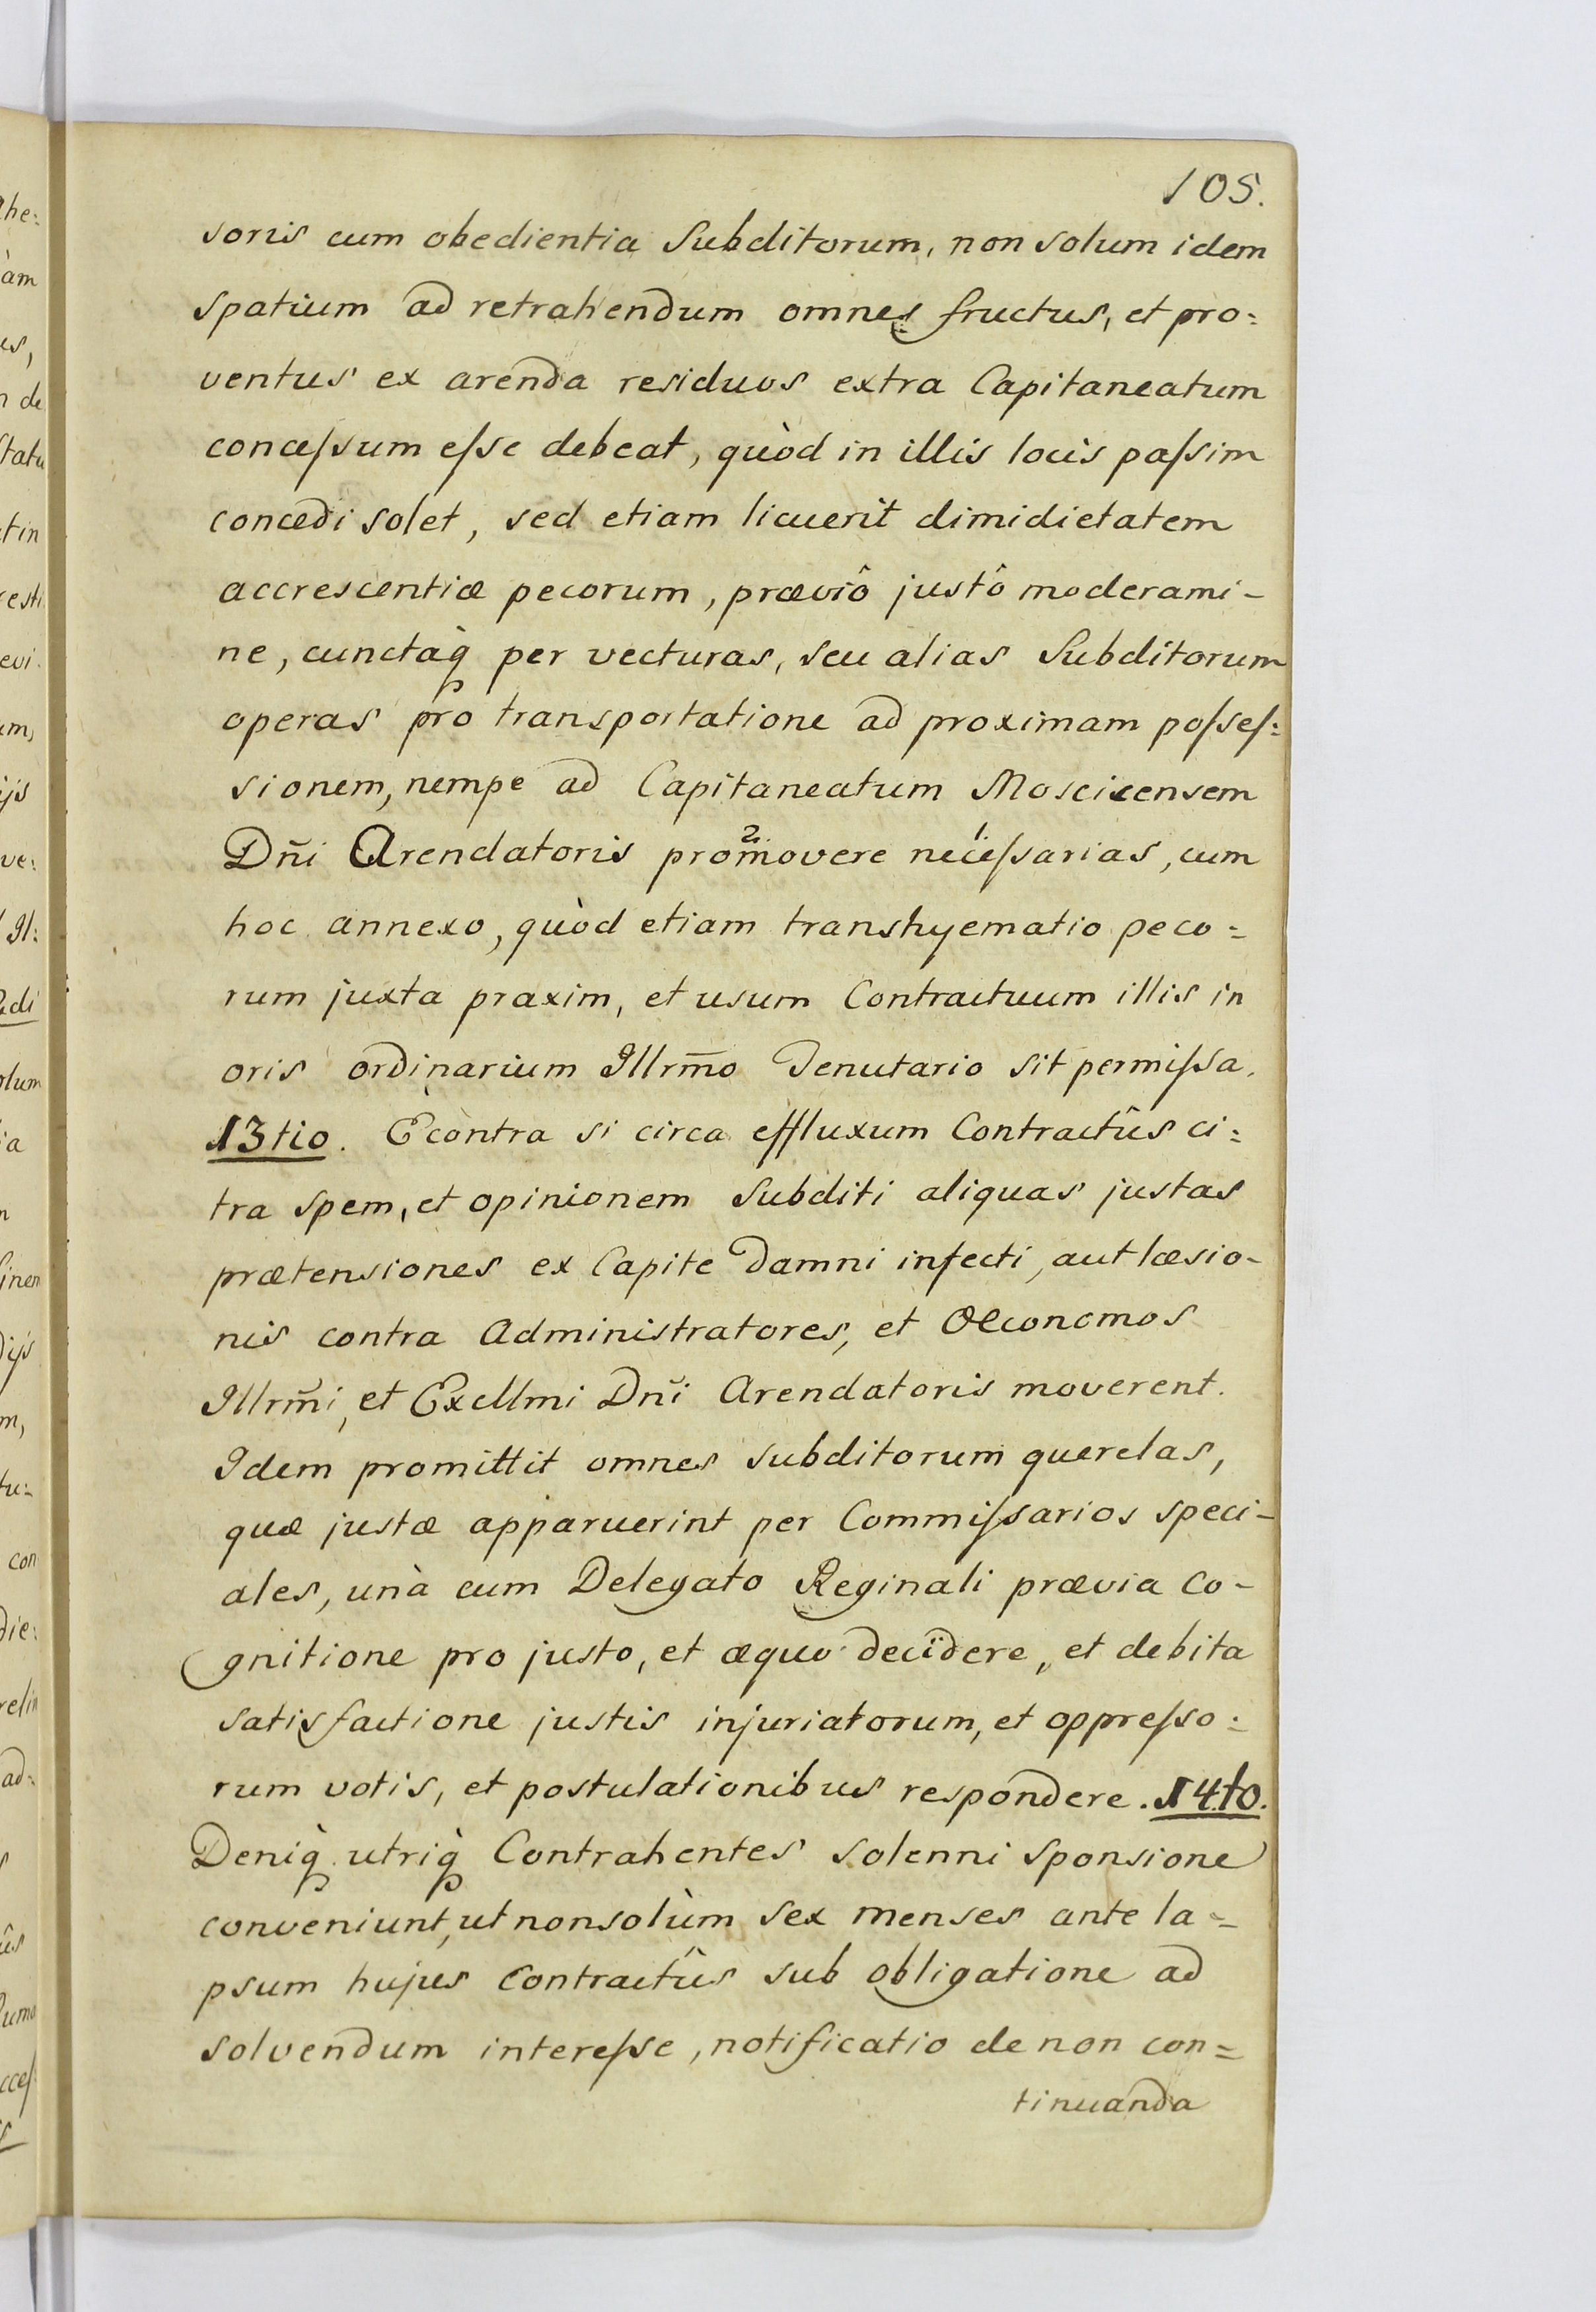 105.
soris cum obedientia Subditorum, non solum idem
spatium ad retrahendum omnes fructus, et pro=
ventus ex arenda residuos extra Capitaneatum
conceſsum eſse debeat, quòd in illis locis paſsim
concedi solet, sed etiam licuerit dimidietatem
accrescentiæ pecorum, præviô justô moderami-
ne, cunctaq̀ per vecturas, seu alias Subditorum
operas pro transportatione ad proximam poſseſ=
sionem, nempe ad Capitaneatum Moscicensem
Dñi Arendatoris 2. promovere 1. neceſsarias, cum
hoc annexo, quòd etiam transhyematio peco=
rum juxta praxim, et usum Contractuum illis in
oris ordinarium Illrm̃o Tenutario sit permiſsa.
13tio. Econtra si circa effluxum Contractûs ci=
tra spem, et opinionem Subditi aliquas justas
prætensiones ex Capite damni infecti, aut læsio-
nis contra Administratores, et Oeconomos
Illrm̃i, et Excllmi Dñi Arendatoris moverent.
Idem promittit omnes subditorum querelas,
quæ justæ apparuerint per Commiſsarios speci-
ales, unà cum Delegato Reginali prævia co-
gnitione pro justo, et æquo decidere, et debita
satisfactione justis injuriatorum, et oppreſso=
rum votis, et postulationibus respondere. 14to.
Deniq̀ utriq̀ Contrahentes solenni sponsione
conveniunt, ut nonsolùm sex menses ante la=
psum hujus Contractûs sub obligatione ad
solvendum intereſse, notificatio de non con=
tinuanda